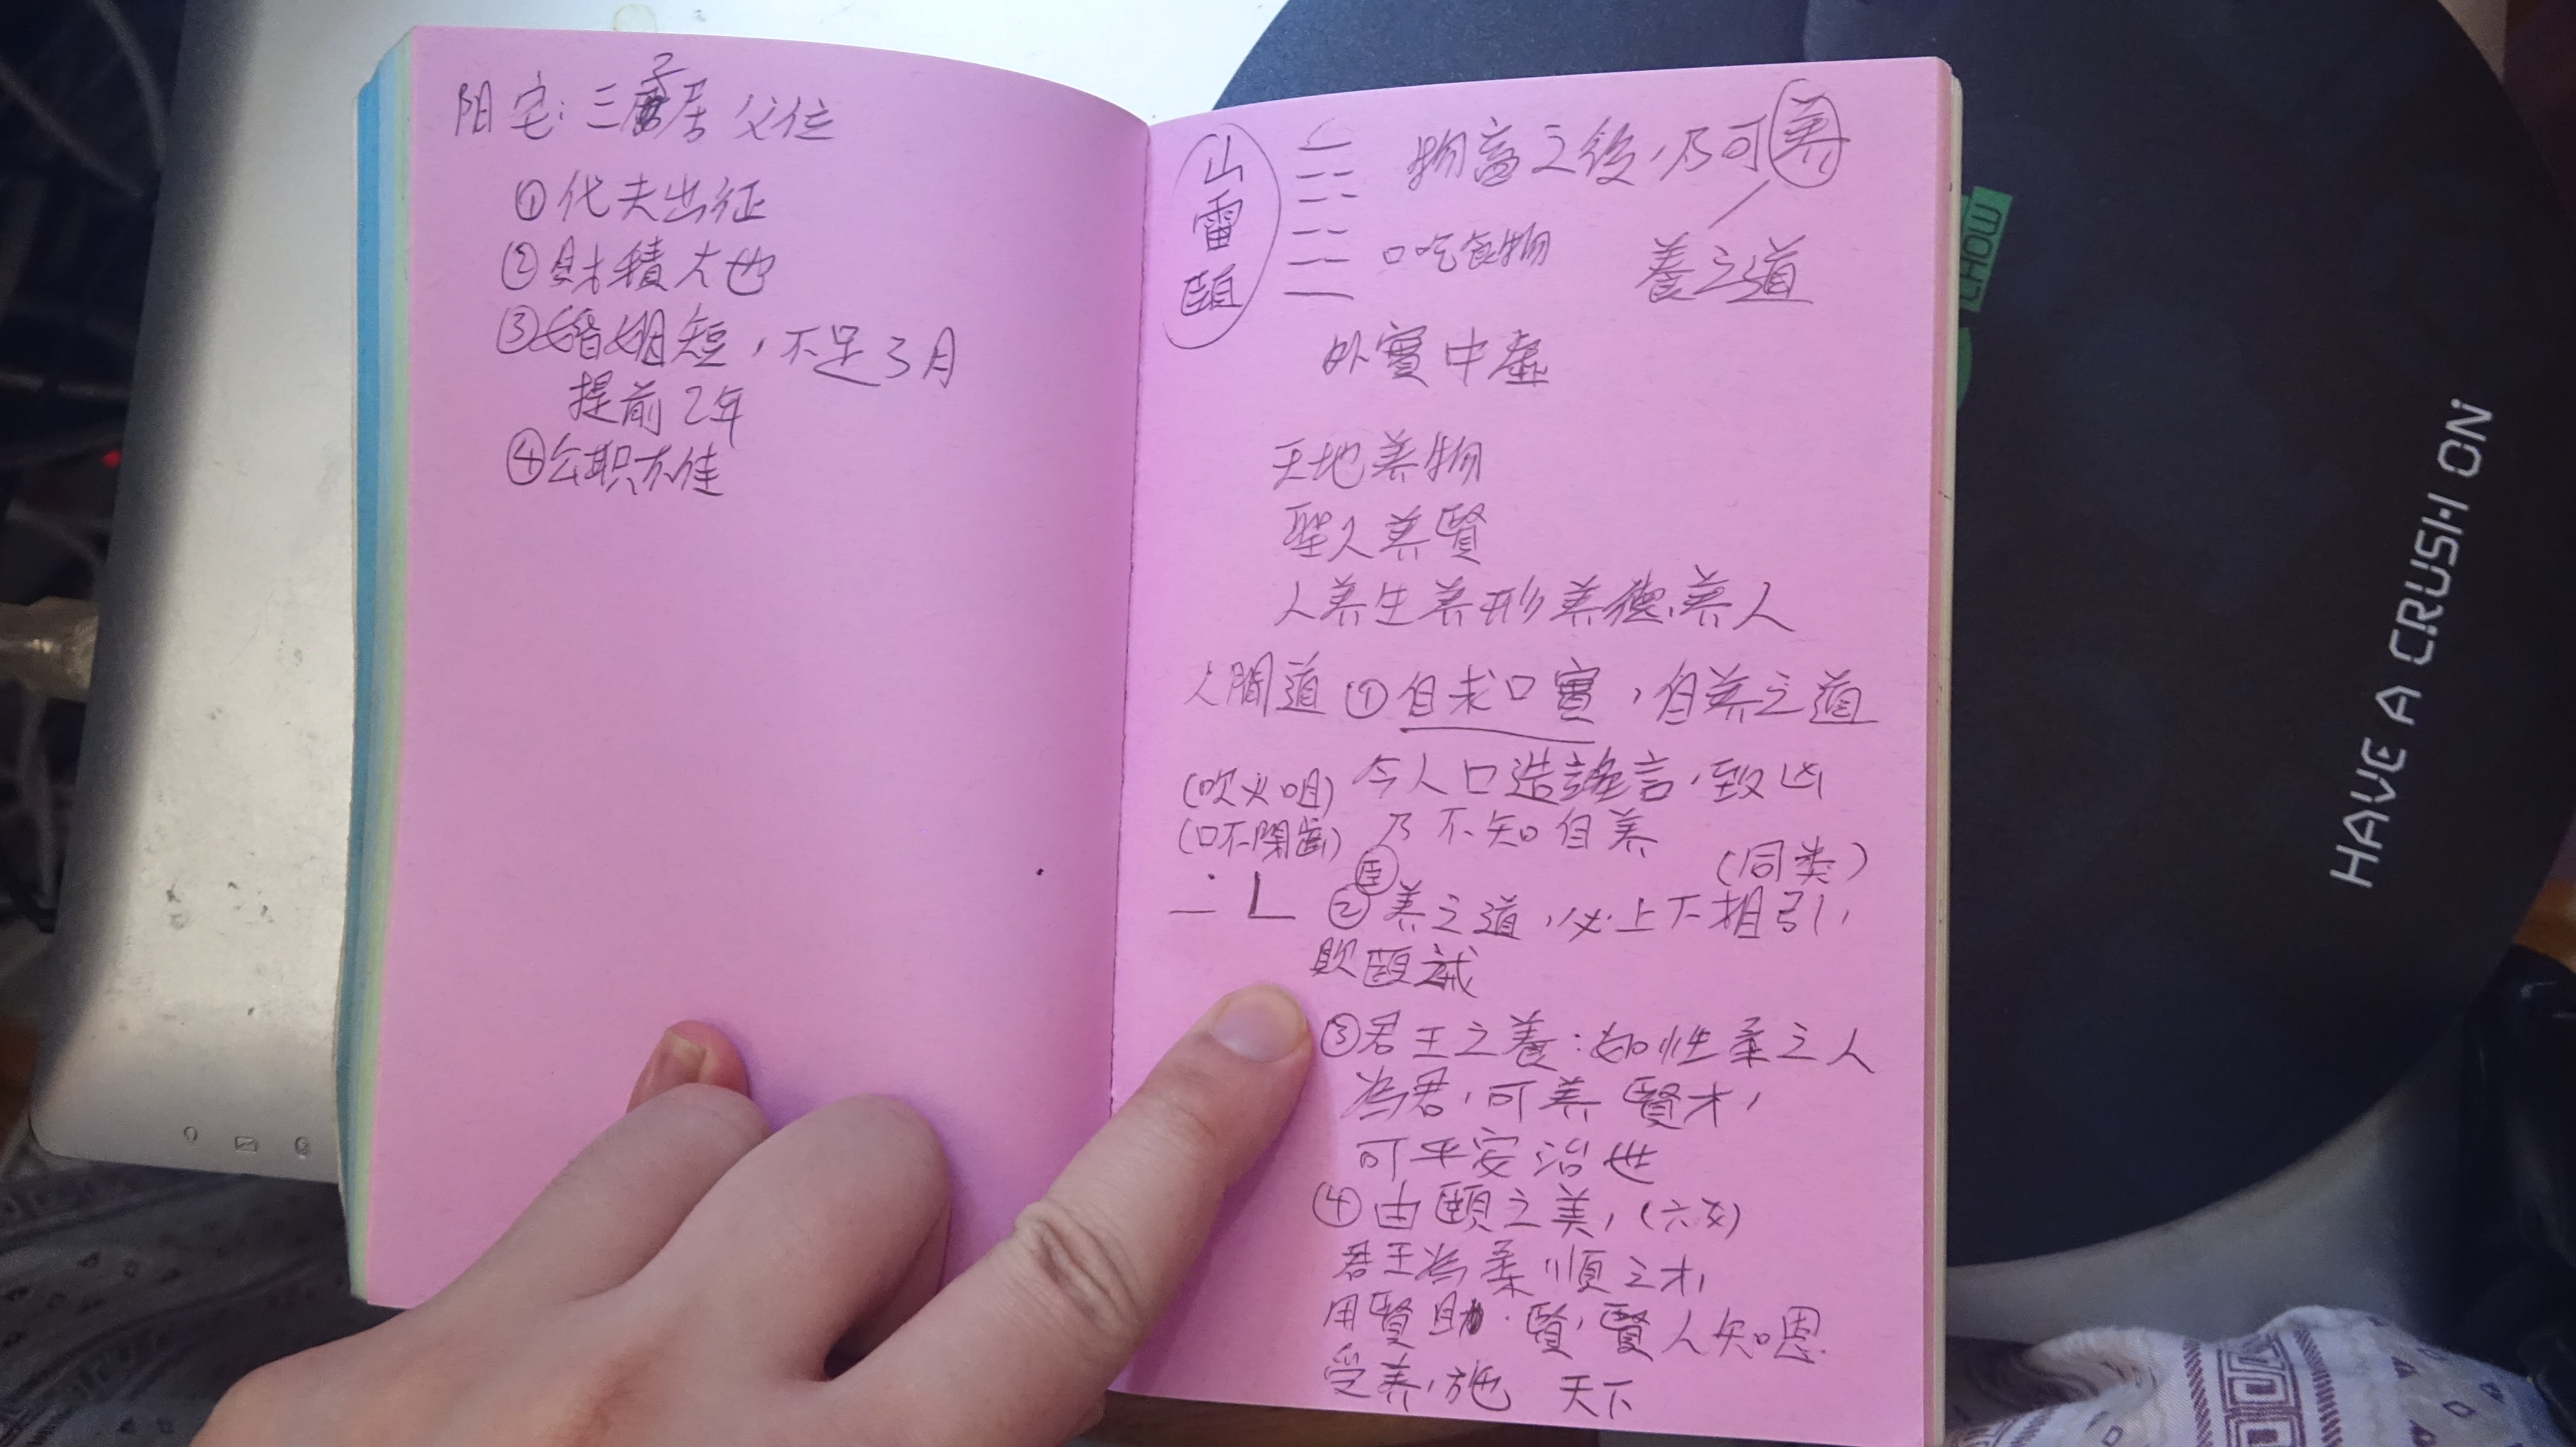 阳宅：三子居父位
①代夫出征
②財積大也
③婚姻短，不足3月
提前2年
④公职亦佳
山雷頤
物畜之後，乃可養
口吃食物
養之道
外實中虛
天地养物
聖人养賢
人养生养形养德、养人
人間道 ①自求口實，自养之道
(吹火咀) 今人口造謠言，致凶
(口不閉齒) 乃不知自养
(同类)
臣
②养之道，必上下相引，
欺頤
③君王之養：如性柔之人
為君，可养賢才，
可平安治世
④由頤之美，(六爻)
君王為柔順之才，
用賢助·賢，賢人知恩
受养，施 天下
CHOW
HAVE A CRUSH ON